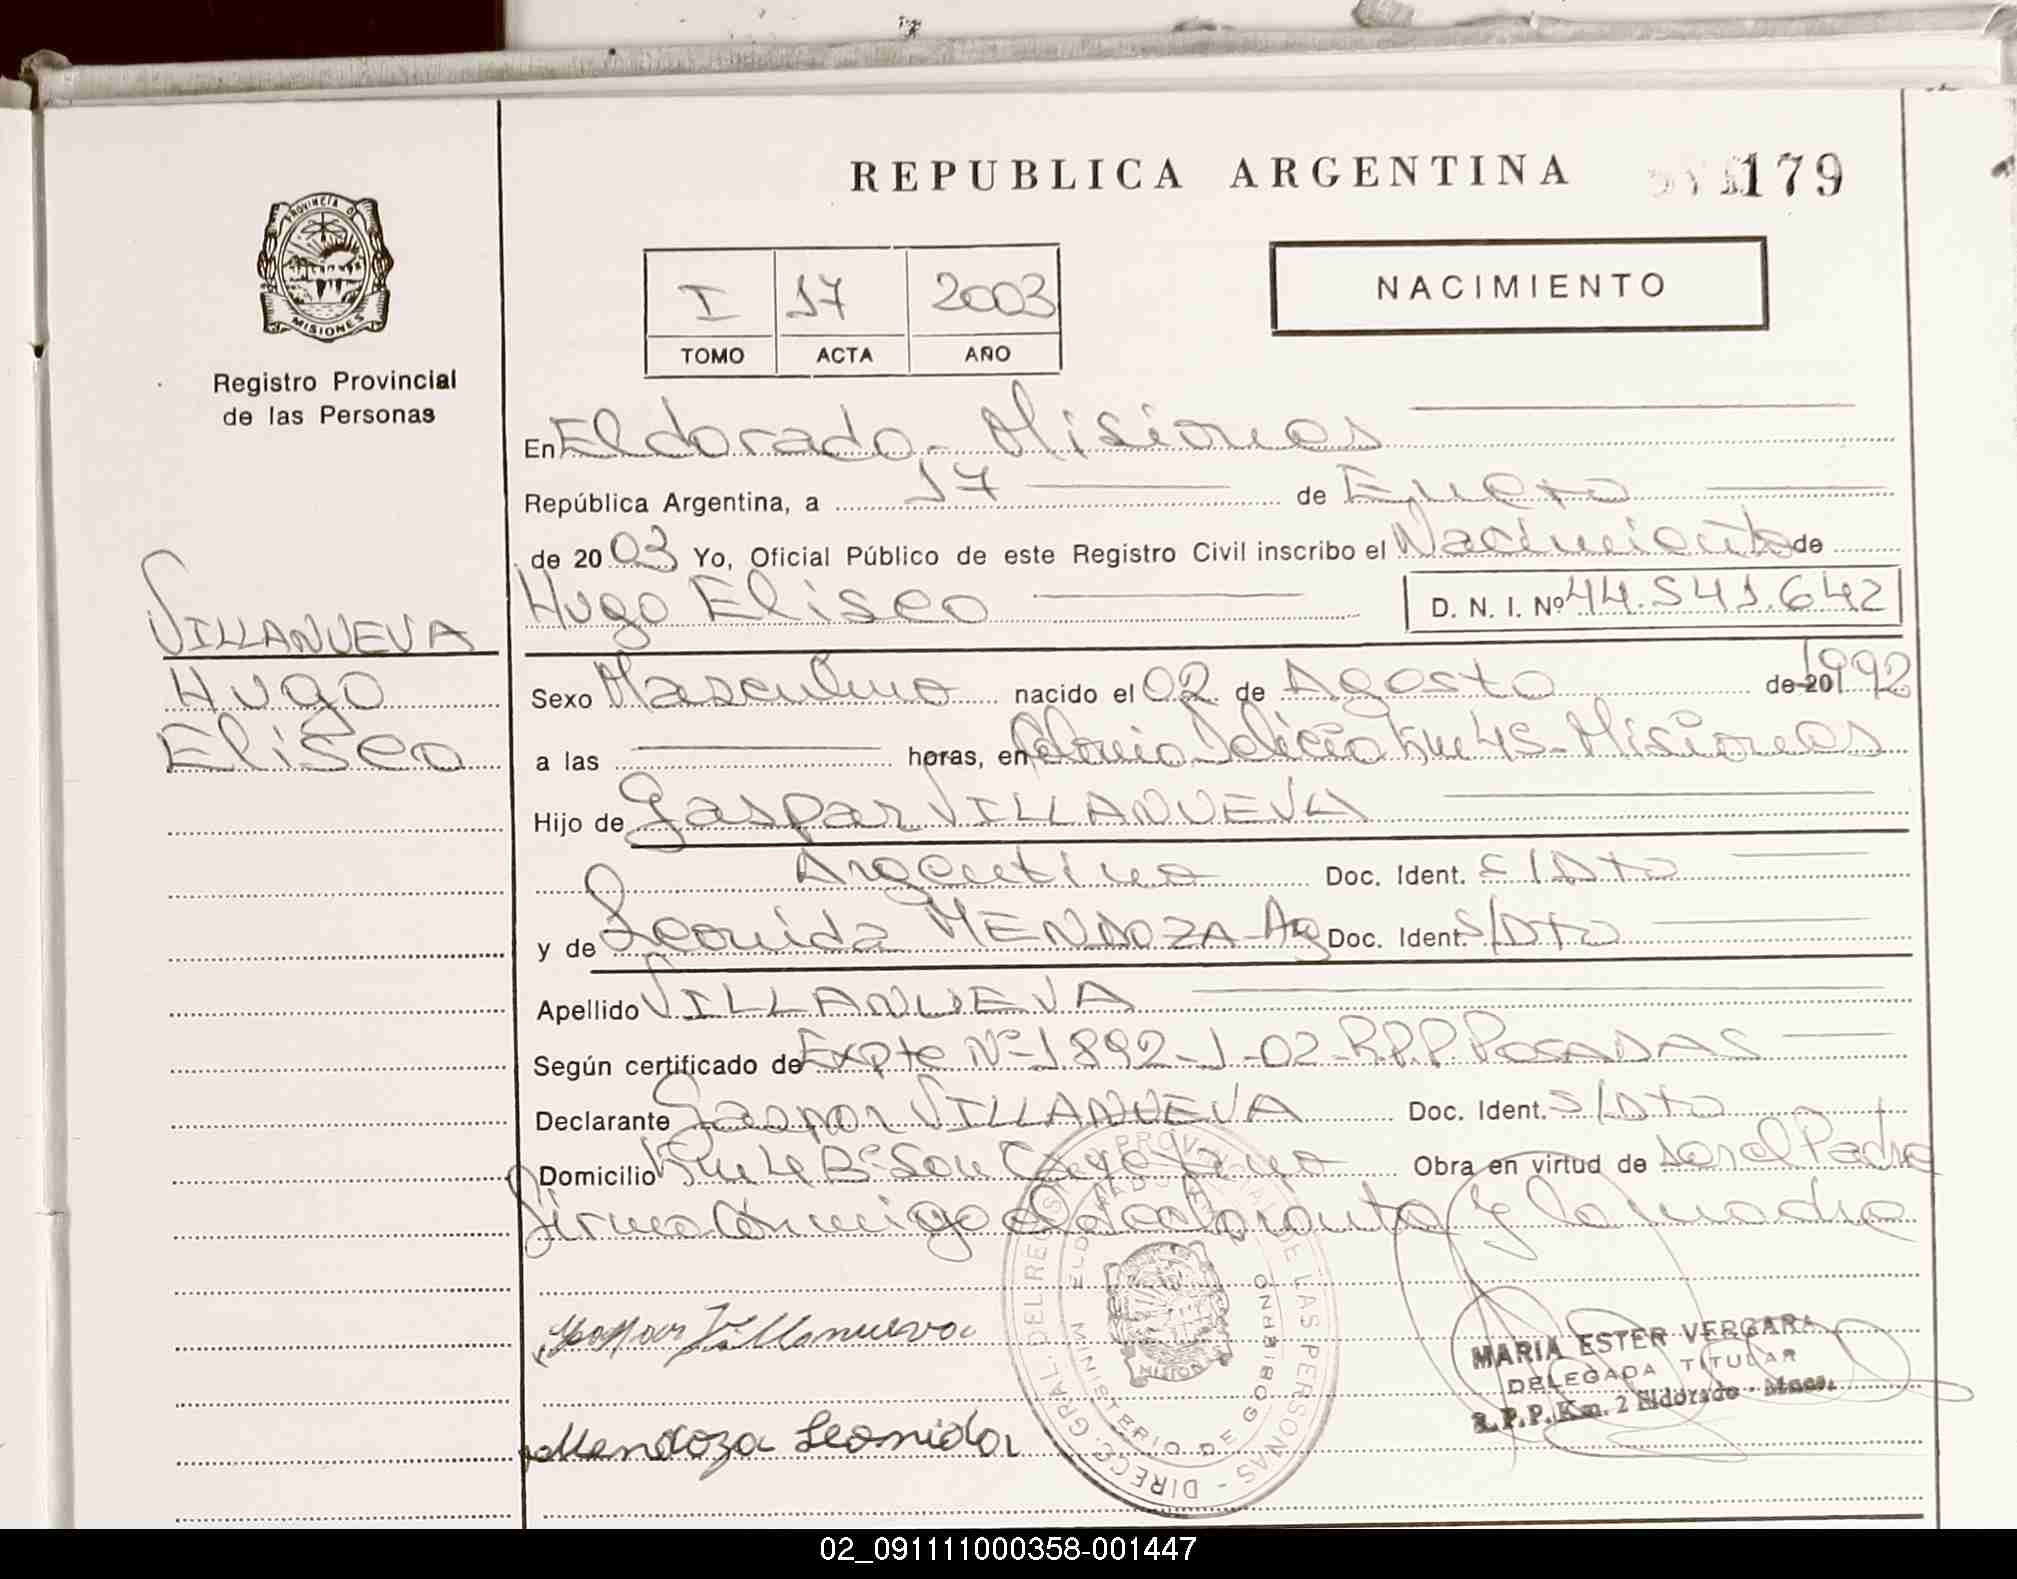 REPUBLICA ARGENTINA 179
PROVINCIA D
MISIONES
Registro Provincial
de las Personas
NACIMIENTO
I 17 2003
TOMO ACTA AÑO
En Eldorado - Misiones
República Argentina, a 17 de Enero
de 2003 Yo, Oficial Público de este Registro Civil inscribo el Nacimiento de
Hugo Eliseo D. N. I. Nº 44.541.642
VILLANUEVA
Hugo
Eliseo
Sexo Masculino nacido el 02 de Agosto de 20 1992
a las horas, en Colonia Delicia Km 45 - Misiones
Hijo de Gaspar VILLANUEVA
Argentino Doc. Ident. S/Dto
y de Leonida MENDOZA - Arg Doc. Ident. S/Dto
Apellido VILLANUEVA
Según certificado de Expte Nº 1892-1-02-R.P.P. POSADAS
Declarante Gaspar VILLANUEVA Doc. Ident. S/Dto
Domicilio Km 4 Bº San Cayetano Obra en virtud de ser el Padre
Firma Conmigo el declarante y la madre
Gaspar Villanueva
Mendoza Leonida
DIRECC. GRAL. DEL REGISTRO PROVINCIAL DE LAS PERSONAS
MINISTERIO DE GOBIERNO
ELDORADO
MARIA ESTER VERGARA
DELEGADA TITULAR
R.P.P. Km. 2 Eldorado - Mnes.
02_091111000358-001447